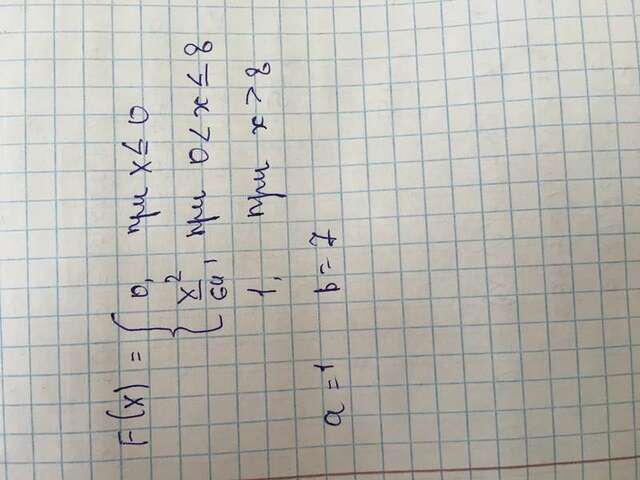 F(x) = { 0, при x ≤ 0
x²/64, при 0 < x ≤ 8
1, при x > 8
a = 1 b = 7